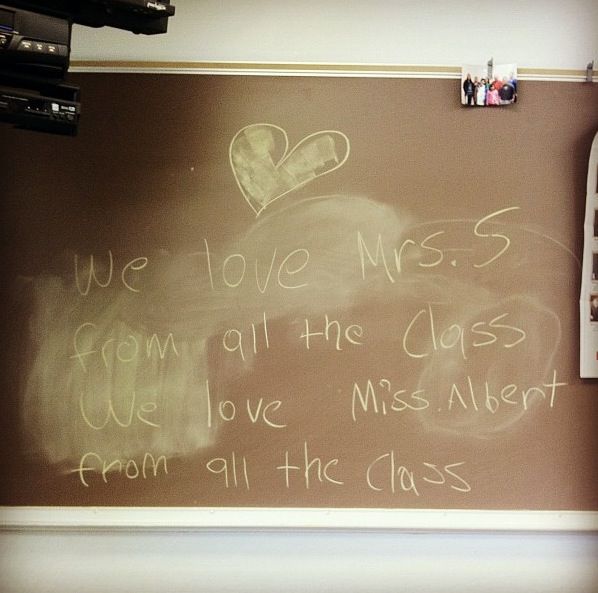 We love Mrs. S
from all the Class
We love Miss. Albert
from all the Class